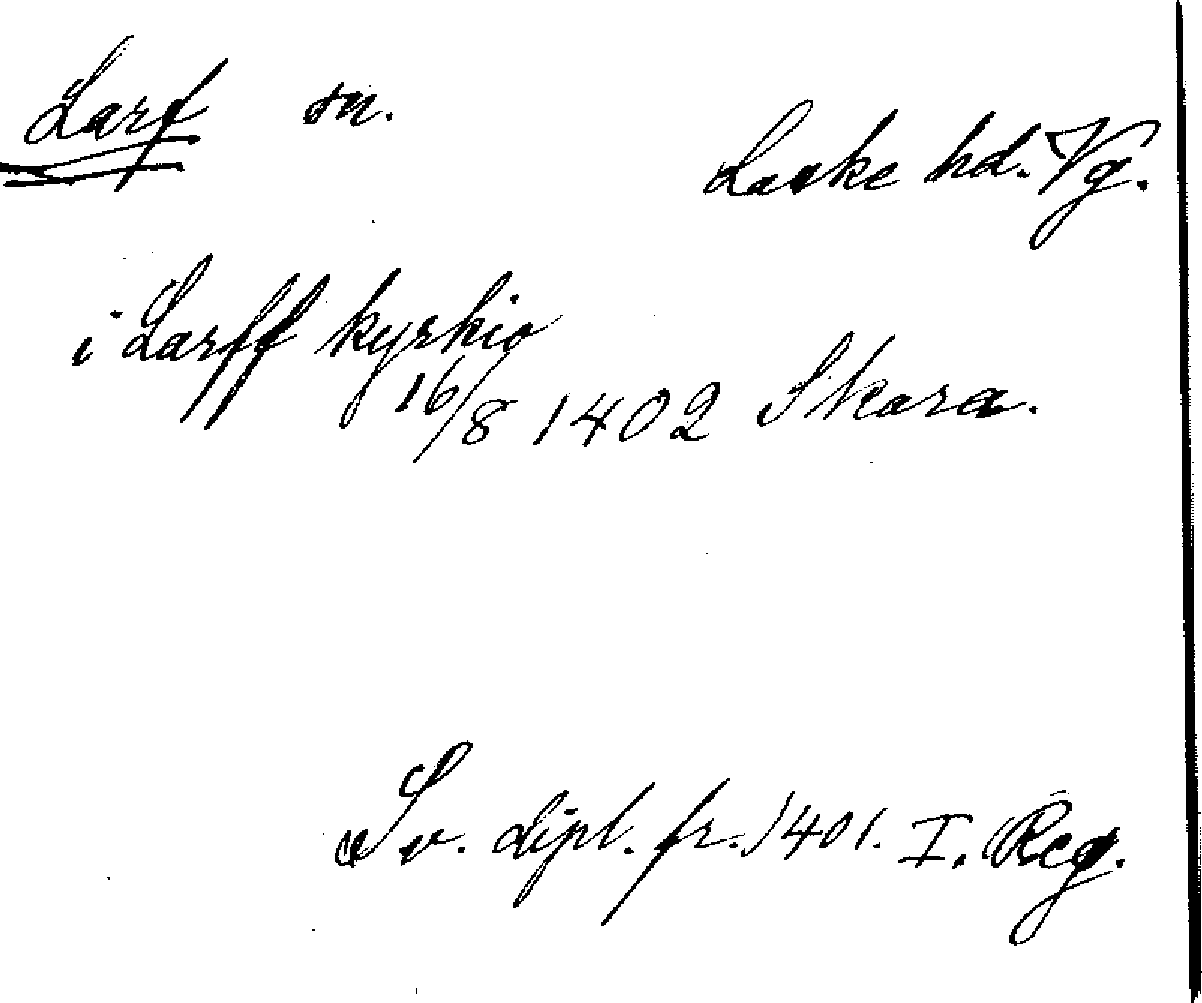 Larf sn.
Laske hd. Vg.
i Larff kyrkio
16/8 1402 Skara.
Sv. dipl. fr. 1401. I. Reg.